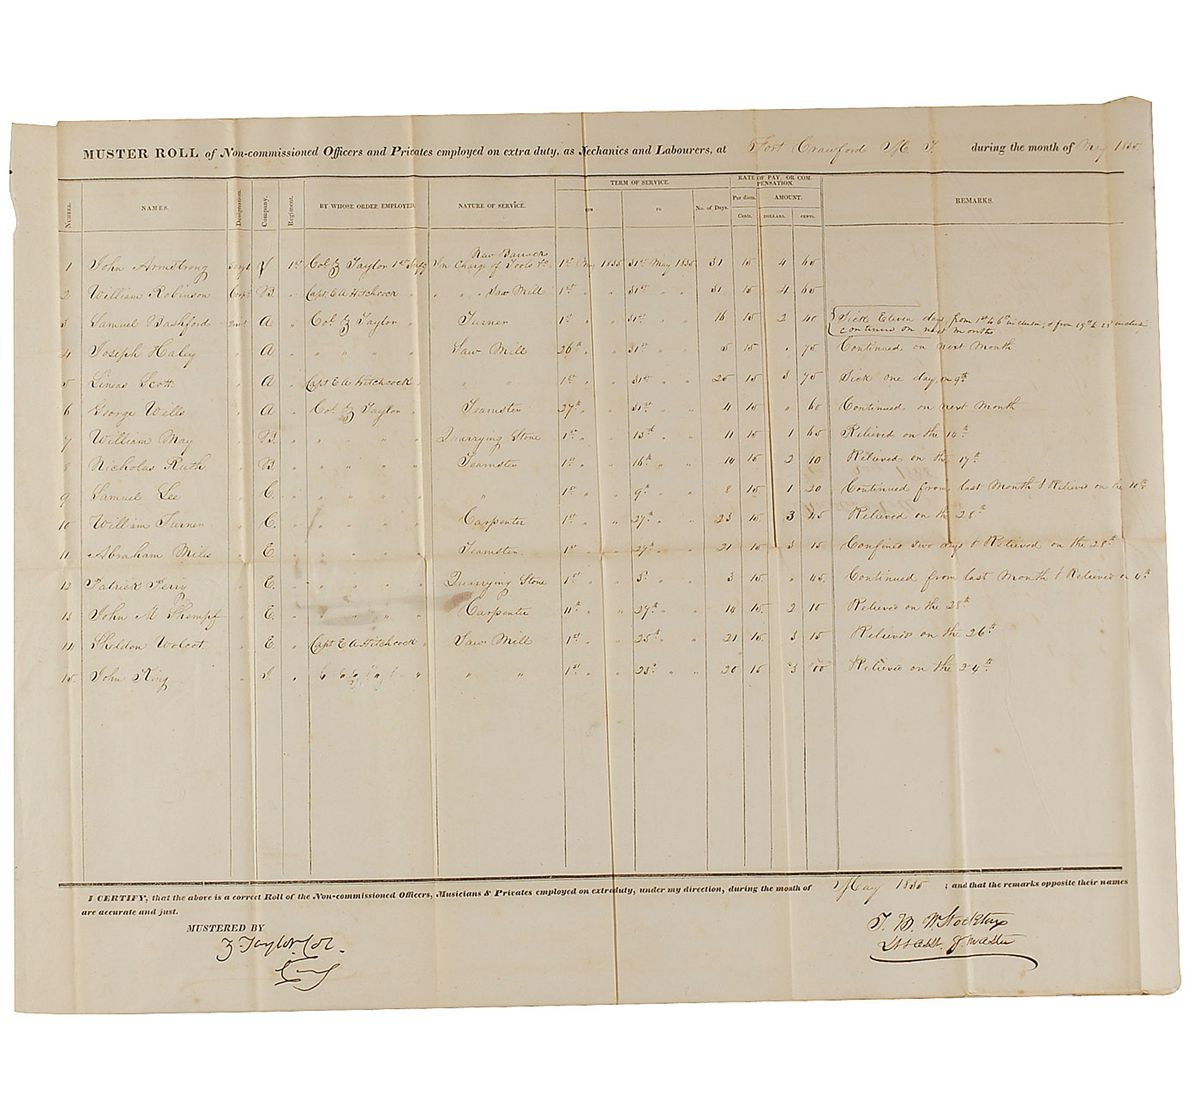 MUSTER ROLL of Non-commissioned Officers and Privates employed on extra duty, as Mechanics and Labourers, at Fort Crawford M T during the month of May 1835.
NUMBER. NAMES. Designation. Company. Regiment. BY WHOSE ORDER EMPLOYED. NATURE OF SERVICE. TERM OF SERVICE. TO No. of Days. RATE OF PAY, OR COMPENSATION. Per diem. Cents. AMOUNT. DOLLARS. CENTS. REMARKS.
New Barrack
1 John Armstrong Sergt 1st Col Z Taylor 1st Infy In Charge of Tools &c 1st May 1835 31st May 1835 31 15 4 65
2 William Robinson Corpl B " Capt E A Hitchcock " " " Saw Mill 1st " 31st " " 31 15 4 65
3 Samuel Bashford A " Col Z Taylor " Turner 1st " 31st " " 16 15 2 40 Sick Eleven days from 1st to 6th inclusive, & from 19th to 23d inclusive
continued on next months
4 Joseph Haley " A " " " " " Saw Mill 26th " 31st " " 5 15 " 75 Continued on next Month
5 Lineas Scott " A " Capt E A Hitchcock " " " 1st " 31st " " 25 15 3 75 Sick one day, on 9th
6 George Wills " A " Col Z Taylor " Teamster 27th " 31st " " 4 15 " 60 Continued on next Month
7 William May " B " " " " " Quarrying Stone 1st " 13th " " 11 15 1 65 Relieved on the 14th
8 Nicholas Ruth " B " " " " " Teamster 1st " 16th " " 14 15 2 10 Relieved on the 17th
9 Samuel Lee " C. " " " " " " 1st " 9th " " 8 15 1 20 Continued from last Month & Relieved on the 10th
10 William Turner " C. " " " " " Carpenter 1st " " 27th " " 23 15 3 45 Relieved on the 28th
11 Abraham Mills " E. " " " " " Teamster 1st " " 27th " " 21 15 3 15 Confined two days & Relieved on the 28th
12 Patrick Perry " E. " " " " " Quarrying Stone 1st " " 3d " " 3 15 " 45 Continued from last Month & Relieved on 4th
13 John M " E. " " " " " Carpenter 11th " " 27th " " 14 15 2 10 Relieved on the 28th
14 Sheldon Wolcot " E. " Capt E A Hitchcock " Saw Mill 1st " 25th " " 21 15 3 15 Relieved on the 26th
15 John King " " " " 1st " 23d " " 20 15 3 00 Relieved on the 24th
I CERTIFY, that the above is a correct Roll of the Non-commissioned Officers, Musicians & Privates employed on extra duty, under my direction, during the month of May 1835 ; and that the remarks opposite their names
are accurate and just.
MUSTERED BY
Z. Taylor Col.
T. B. W. Stockton
Lt & asst. Qr master